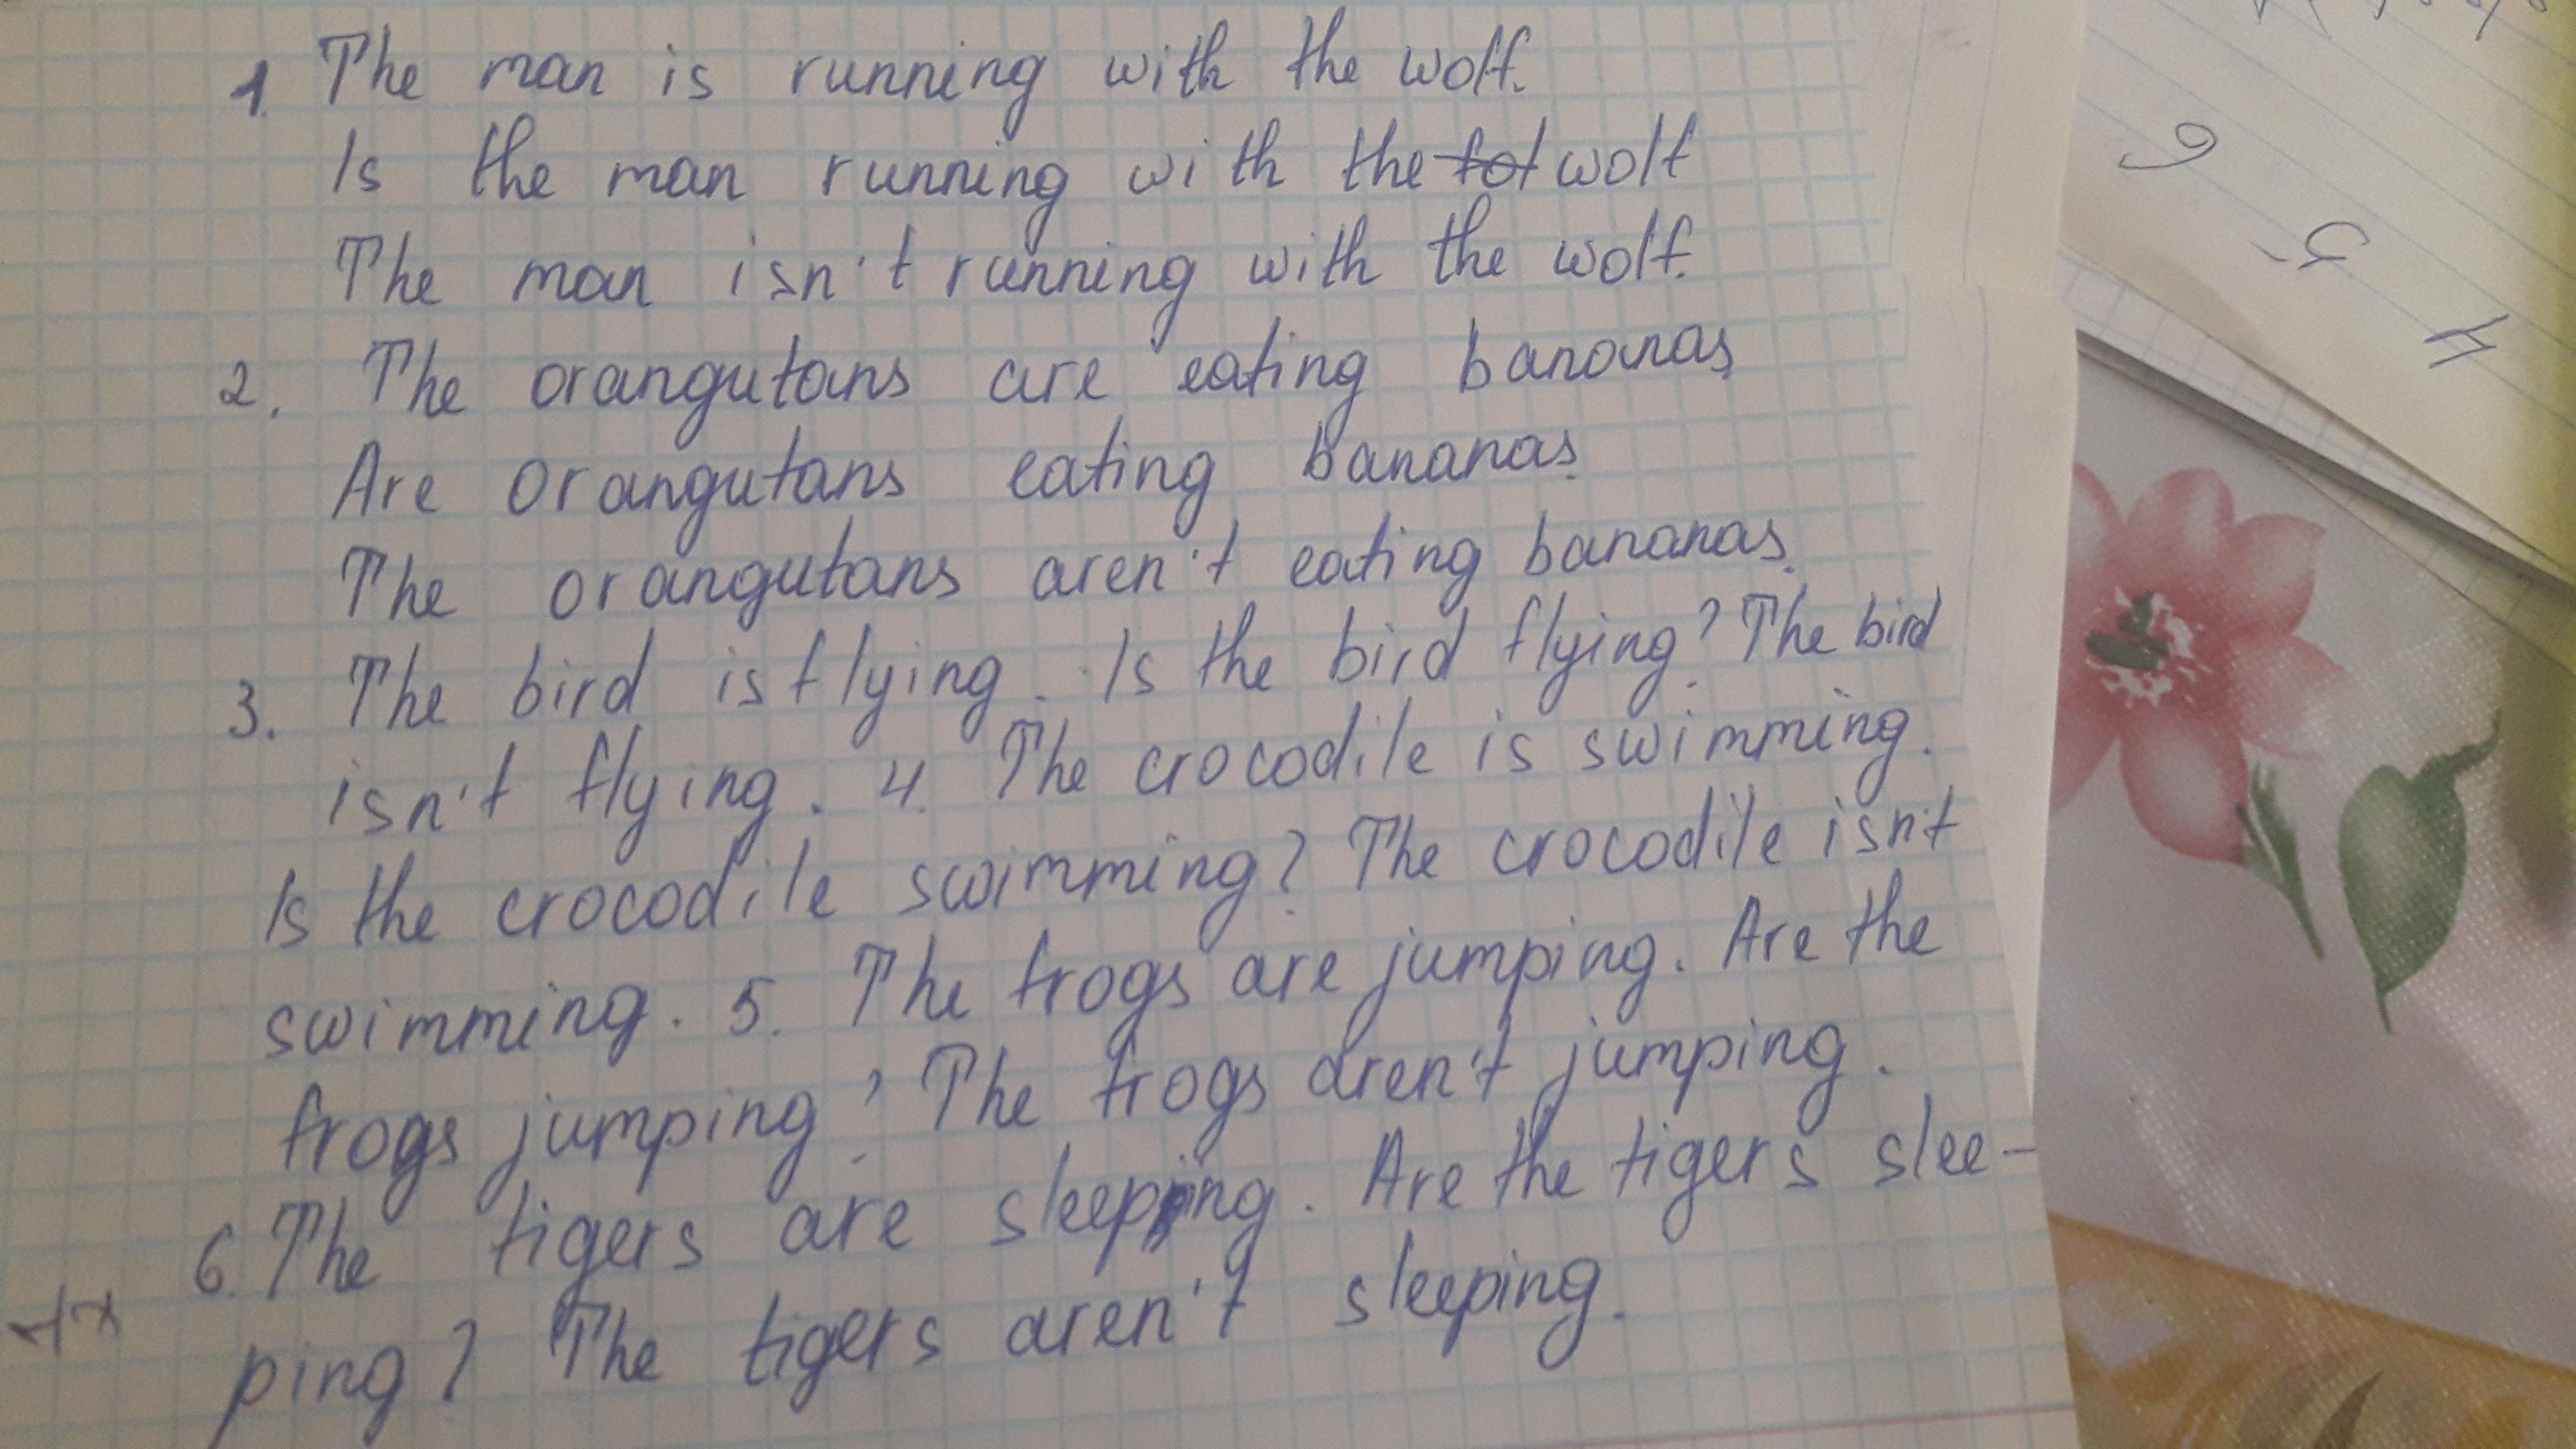 1. The man is running with the wolf.
Is the man running with the fot wolf
The man isn't running with the wolf.
2. The orangutans are eating bananas
Are orangutans eating bananas.
The orangutans aren't eating bananas.
3. The bird is flying. Is the bird flying? The bird
isn't flying. 4. The crocodile is swimming.
Is the crocodile swimming? The crocodile isn't
swimming. 5. The frogs are jumping. Are the
frogs jumping? The frogs aren't jumping.
6. The tigers are sleeping. Are the tigers slee-
ping? The tigers aren't sleeping.